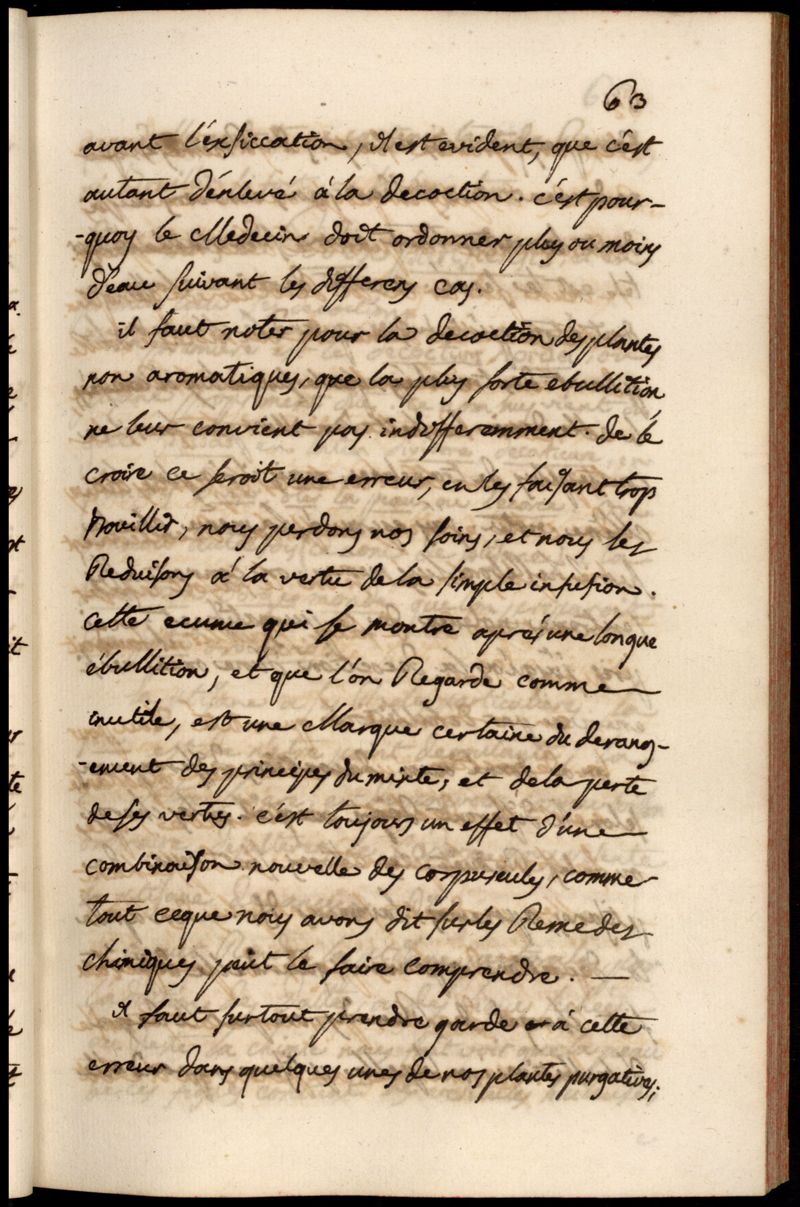 63
avant l'éxsiccation, il est evident, que c'est
autant d'énlevé á la decoction. c'est pour-
-quoy le Medecin doit ordonner plus ou moins
d'eau suivant les differens cas.
il faut noter pour la decoction des plantes
non aromatiques, que la plus forte ebullition
ne leur convient pas indifferemment. de le
croire ce seroit une erreur, en les faisant trop
Bouillir, nous perdons nos soins, et nous les
Reduisons á la vertu de la simple infusion.
cette ecume qui se montre aprés une longue
ébullition, et que l'on Regarde comme
inutile, est une Marque certaine du derang-
-ement des principes du mixte, et de la perte
de ses vertus. c'est toujours un effet d'une
combinaison nouvelle des corpuscules, comme
tout ceque nous avons dit sur les Remedes
chimiques peut le faire comprendre. —
il faut surtout prendre garde á cette
erreur dans quelques unes de nos plantes purgatives;